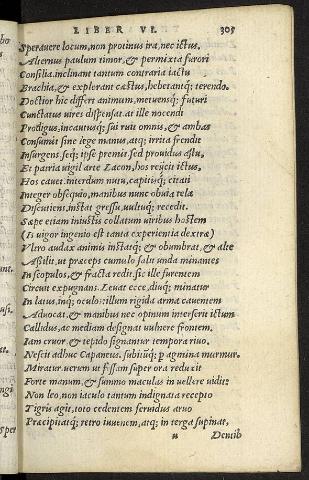 LIBER VI. 305
Sperauere locum, non protinus ira, nec ictus.
Alternus paulum timor, & permixta furori
Consilia. inclinant tantum contraria iactu
Brachia, & explorant cæstus, hebetantq; terendo.
Doctior hic differt animum, metuensq; futuri
Cunctatus uires dispensat. at ille nocendi
Prodigus, incautusq; sui ruit omnis, & ambas
Consumit sine lege manus, atq; irrita frendit
Insurgens, seq; ipse premit. sed prouidus astu,
Et patria uigil arte Lacon, hos reijcit ictus,
Hos cauet. interdum nutu, capitisq; citati
Integer obsequio, manibus nunc obuia tela
Discutiens, instat gressu, uultuq; recedit.
Sæpe etiam iniustis collatum uiribus hostem
(Is uigor ingenio est tanta experientia dextræ)
Vltro audax animis instatq;, & obumbrat, & alte
Assilit. ut præceps cumulo salit unda minantes
In scopulos, & fracta redit. sic ille furentem
Circuit expugnans. Leuat ecce, diuq; minatur
In latus, inq; oculos: illum rigida arma cauentem
Aduocat, & manibus nec opinum interserit ictum
Callidus, ac mediam designat uulnere frontem.
Iam cruor, & tepido signantur tempora riuo.
Nescit adhuc Capaneus. subitūq; p agmina murmur.
Miratur. uerum ut fissam super ora reduxit
Forte manum, & summo maculas in uellere uidit:
Non leo, non iaculo tantum indignata recepto
Tigris agit. toto cedentem feruidus aruo
Præcipitatq; retro iuuenem, atq; in terga supinat,
u Dentib